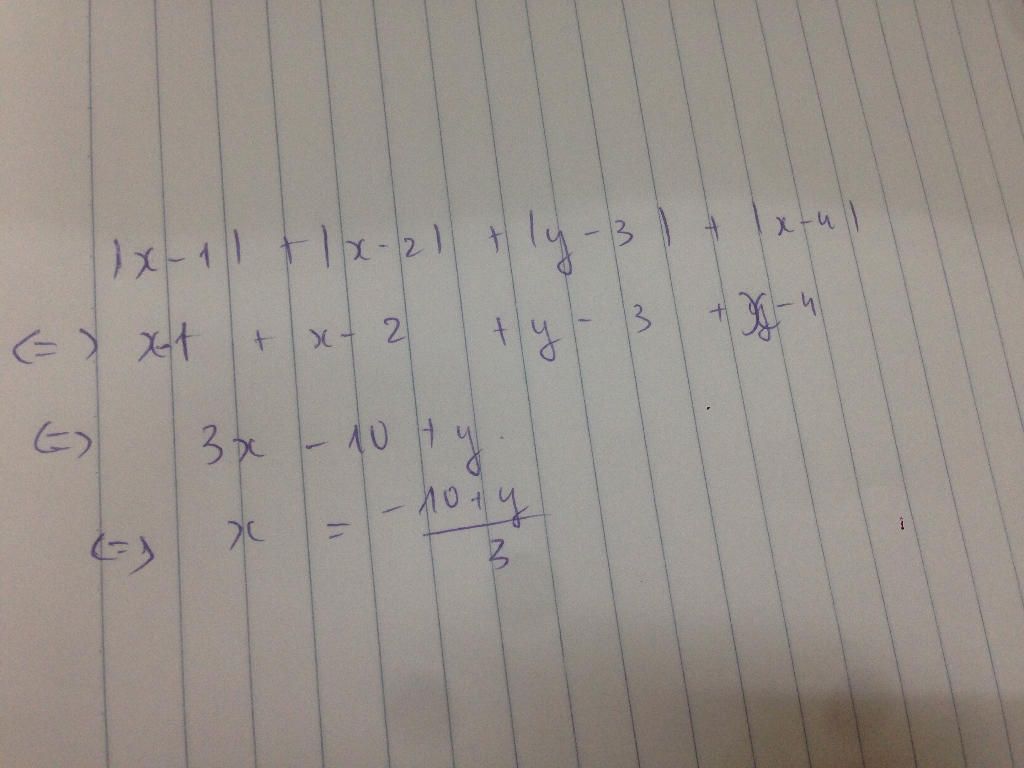 |x-1| + |x-2| + |y-3| + |x-4|
(=) x-1 + x-2 + y-3 + x-4
(=) 3x - 10 + y
(=) x = -10+y / 3